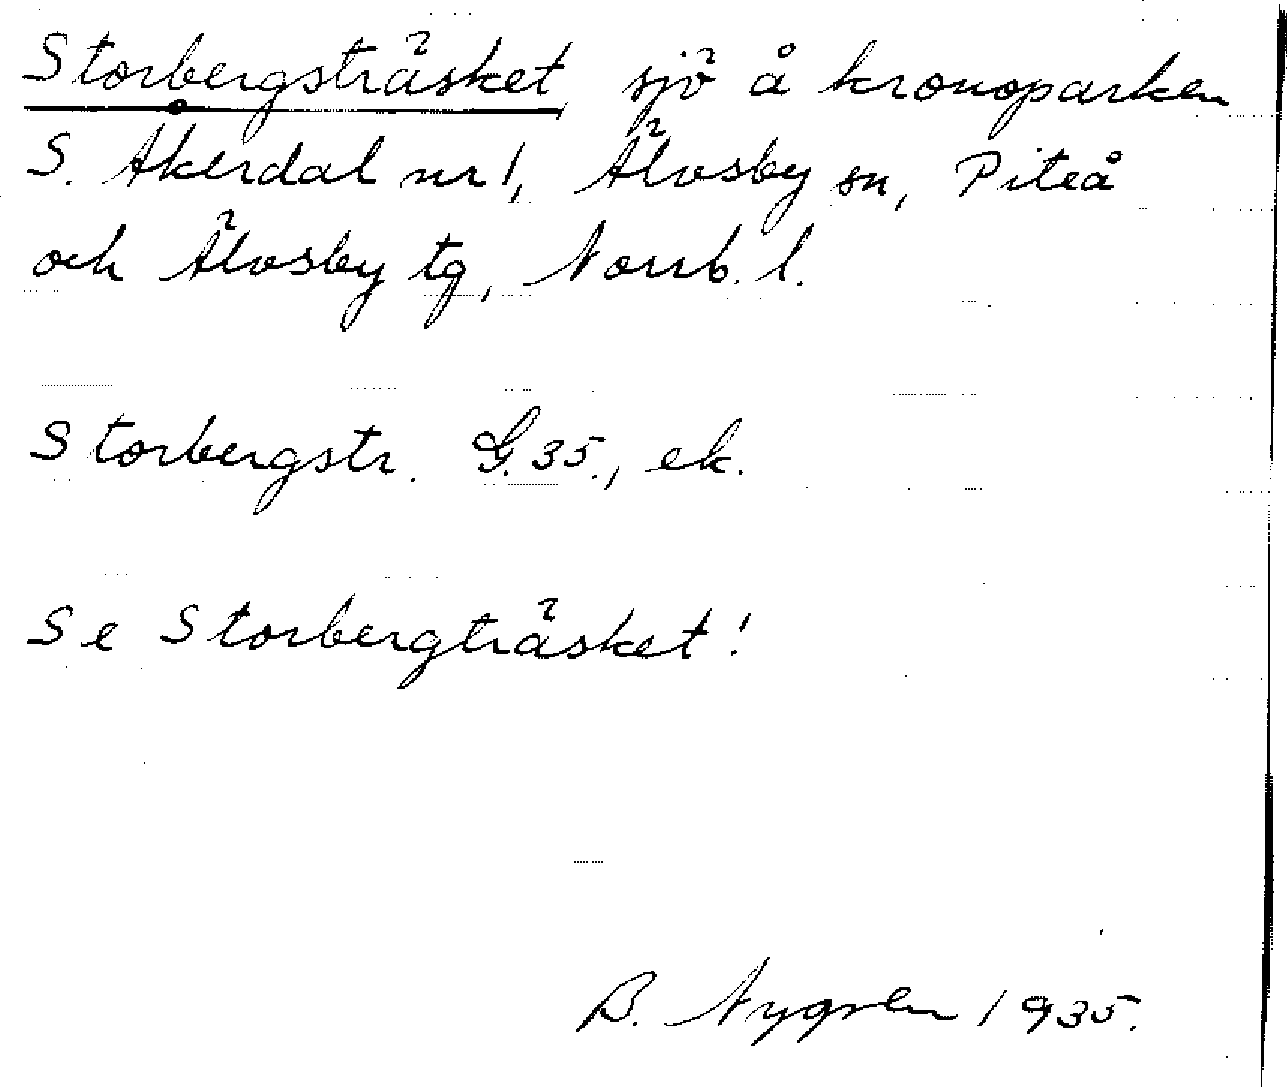 Storbergsträsket sjö å kronoparken
S. Åkerdal nr 1, Älvsby sn, Piteå
och Älvsby tg, Norrb. l.
Storbergstr. G. 35., ek.
Se Storbergträsket!
B. Nygren 1935.